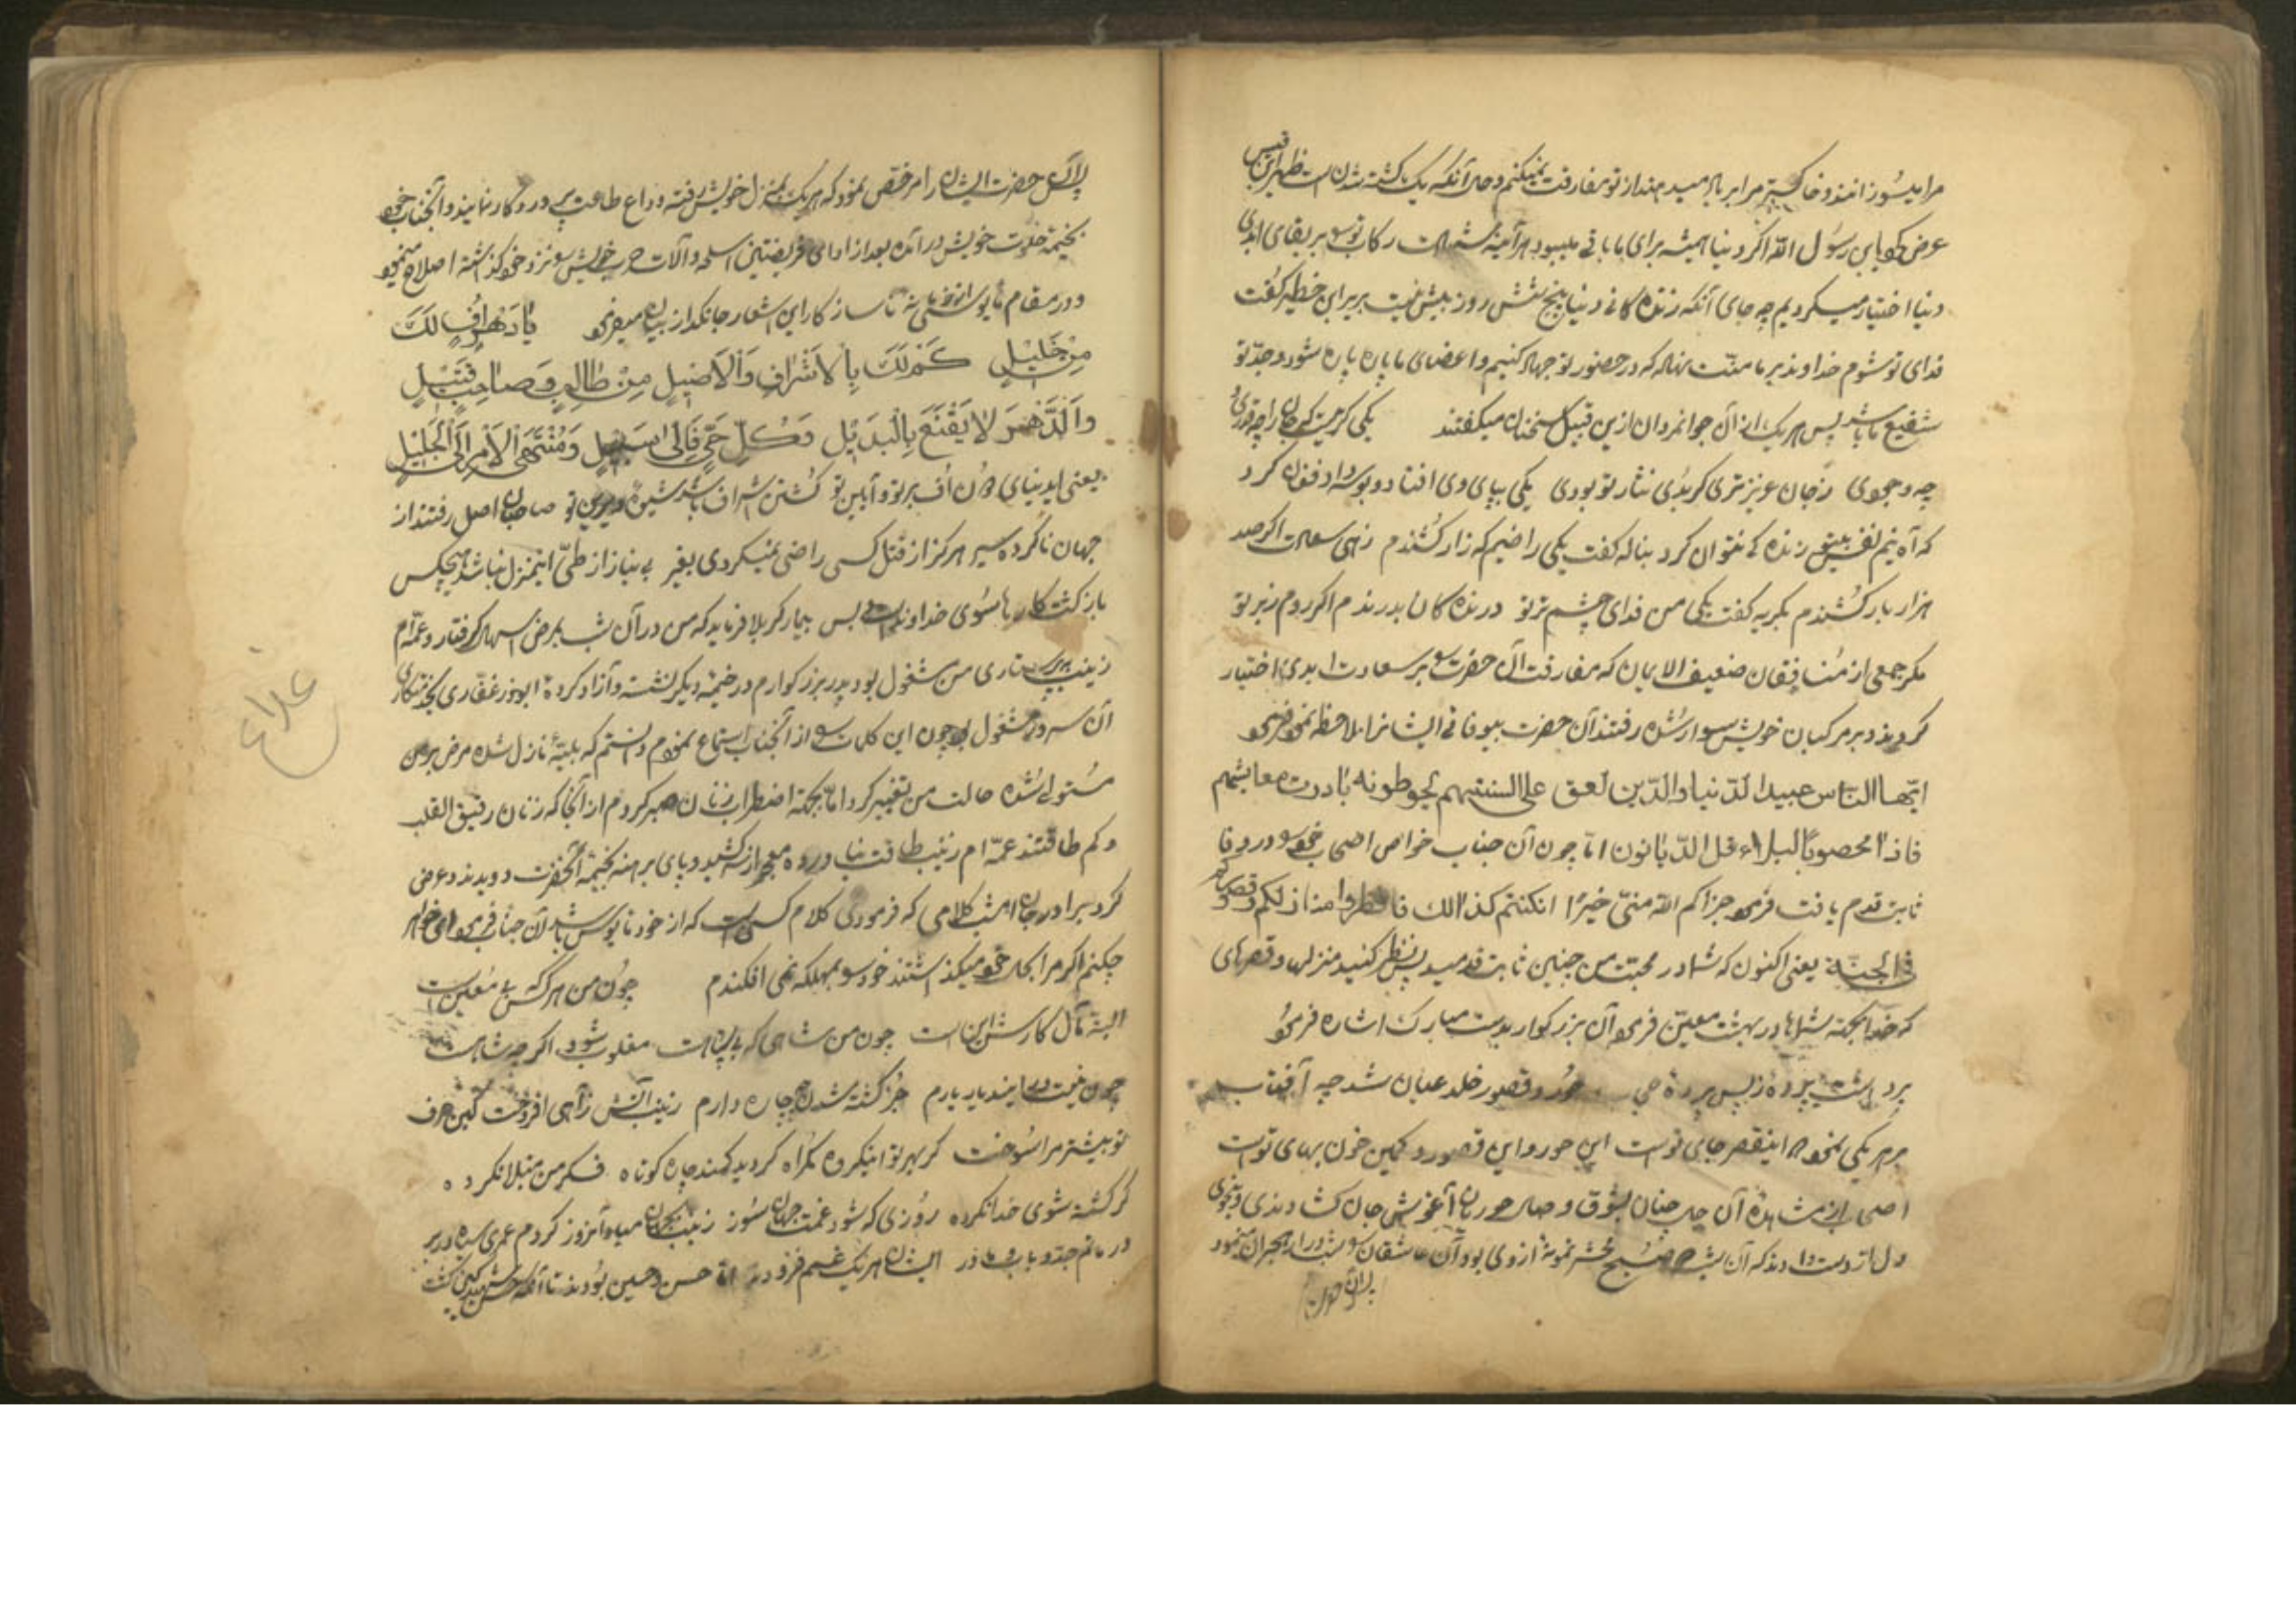 مرا میسوزانند و خاکستر مرا بر باد میدهند از تو مفارقت نمیکنم و حال آنکه یک کشته شدنست ظهیر ابن قیس
عرض کرد یا بن رسول الله اگر دنیا همیشه برای ما باقی میبود هر آینه شهادت رکاب تو را بر بقای ابدی
دنیا اختیار میکردیم چه جای آنکه زندگانی دنیا پنج شش روز بیش نیست بریر ابن خضیر گفت
فدای تو شوم خداوند بر ما منت نهاد که در حضور تو جهاد کنیم و اعضای ما پاره پاره شود و جد تو
شفیع ما باشد پس هر یک از آن جوانمردان ازین قبیل سخنان میگفتند یکی گریست که جان را چه قدری
چه وجودی ز جان عزیزتری گر بدی نثار تو بودی یکی بپای وی افتاد و بوسه داد فغان کرد
که آه نیم نفس بیتو زنده کی نتوان کرد بناله گفت یکی راضیم که زار کشندم زهی سعادت اگر صد
هزار بار کشندم بگریه گفت یکی من فدای چشم تر تو درندگان بدرندم اگر روم ز بر تو
مگر جمعی از منافقان ضعیف الایمان که مفارقت آن حضرت را بر سعادت ابدی اختیار
کردند و بر مرکبان خویش سوار شده رفتند آن حضرت بیوفائی ایشانرا ملاحظه نمود فرمود
ایها الناس عبید الدنیا و الدین لعق علی السنتهم یحوطونه ما درت معایشهم
فاذا محصوا بالبلاء قل الدیانون اما چون آن جناب خواص اصحاب خود را در وفا
ثابت قدم یافت فرمود جزاکم الله منی خیرا ان کنتم کذالک فانظروا منازلکم و قصورکم
فی الجنة یعنی اکنون که شما در محبت من چنین ثابت قدمید پس نظر کنید منزلها و قصرهای
که خدا بجهة شماها در بهشت معین فرموده آن بزرگوار بدست مبارک اشاره فرمود
برداشت پرده ز پس پرده حور و قصور خلد عیان شد چه آفتاب
بر هر یکی نمود که اینقصر جای توست این حور و این قصور کمین خون بهای توست
اصحاب از مشاهده آن جنان بشوق وصال حوریان آغوش جان گشادندی و بیخودی
دل از دست دادند که آن شب صبح محشر نمونه از وی بود آن عاشقان را شب دراز هجران مینمود
پس از آن حضرت
پس از آن حضرت ایشان را مرخص نمود که هر یک بمنزل خویش رفته وداع طاعت پروردگار نمایند و آنجناب خود
بخیمه خلوت خویش درآمده بعد از ادای فریضتین اسلحه و آلات حرب خویش را نزد خود گذاشته اصلاح مینمود
و در مقام مایوسی از ناساز کار این اشعار جانگداز بیان میفرمود یا دهر اف لک
من خلیل کم لک بالاشراق و الاصیل من طالب و صاحب قتیل
و الدهر لا یقنع بالبدیل و کل حی فالی سبیل و منتهی الامر الی الجلیل
یعنی ای دنیای دون اف بر تو و آیین تو کشتن اشراف باشد شیوه دیرین تو صاحبان اصل رفتند از
جهان ناکرده سیر هرگز از قتل کسی راضی نمیگردی بغیر بی نیاز از طی اینمنزل نباشد هیچکس
بازگشت کارها سوی خداوندست بس بیمار کربلا فرماید که من در آن شب بمرض اسهال گرفتار و عمه ام
زینب بپرستاری من مشغول بود پدر بزرگوارم در خیمه دیگر نشسته و آزاد کرده ابوذر غفاری بخدمتکاری
آن سرور مشغول بود چون این کلمات را از آنجناب استماع نمودم دانستم که بلیه نازل شده مرض بر من
مستولی شده حالت من تغییر کرد اما بجهة اضطراب زنان صبر کردم از آنجا که زنان رقیق القلب
و کم طاقتند عمه ام زینب طاقت نیاورده معجر از سر کشید و پای برهنه بخیمه آنحضرت دویدند و عرض
کرد برادر جان امشب کلامی که فرمودی کلام کسی است که از خود مایوس باشد آن جناب فرمود ای خواهر
چکنم اگر مرا بحال خود میگذاشتند خود را بمهلکه نمی افکندم چون من هر کس که بی معین است
البته مآل کارش اینست چون من شاهی که بی سپاهست مغلوب شود اگر چه شاهست
چون نیست در اینديار یارم جز کشته شدن چه چاره دارم زینب آتش ز آهی افروخت کین حرف
تو بیشتر مرا سوخت گر بهر تو اینگروه گمراه کردید کمند چاره کوتاه فکر من مبتلا نکرده
گر کشته شوی خدا نکرده روزی که شود غمت جهان سوز زینب بجهان مباد آنروز کردم عمری سیاه در بر
در ماتم جد و باب و مادر ایشان هر یک غمم فزودند اما حسن و حسین بودند تا آنکه حسن شهید کین گشت